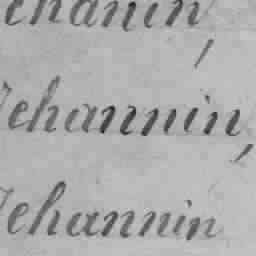 Jehanin,
Jehannin,
Jehannin